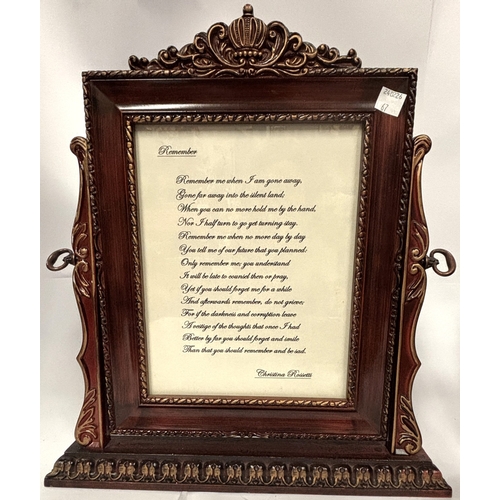 240226
67
Remember
Remember me when I am gone away,
Gone far away into the silent land;
When you can no more hold me by the hand,
Nor I half turn to go yet turning stay.
Remember me when no more day by day
You tell me of our future that you planned;
Only remember me; you understand
It will be late to counsel then or pray,
Yet if you should forget me for a while
And afterwards remember, do not grieve;
For if the darkness and corruption leave
A vestige of the thoughts that once I had
Better by far you should forget and smile
Than that you should remember and be sad.
Christina Rossetti